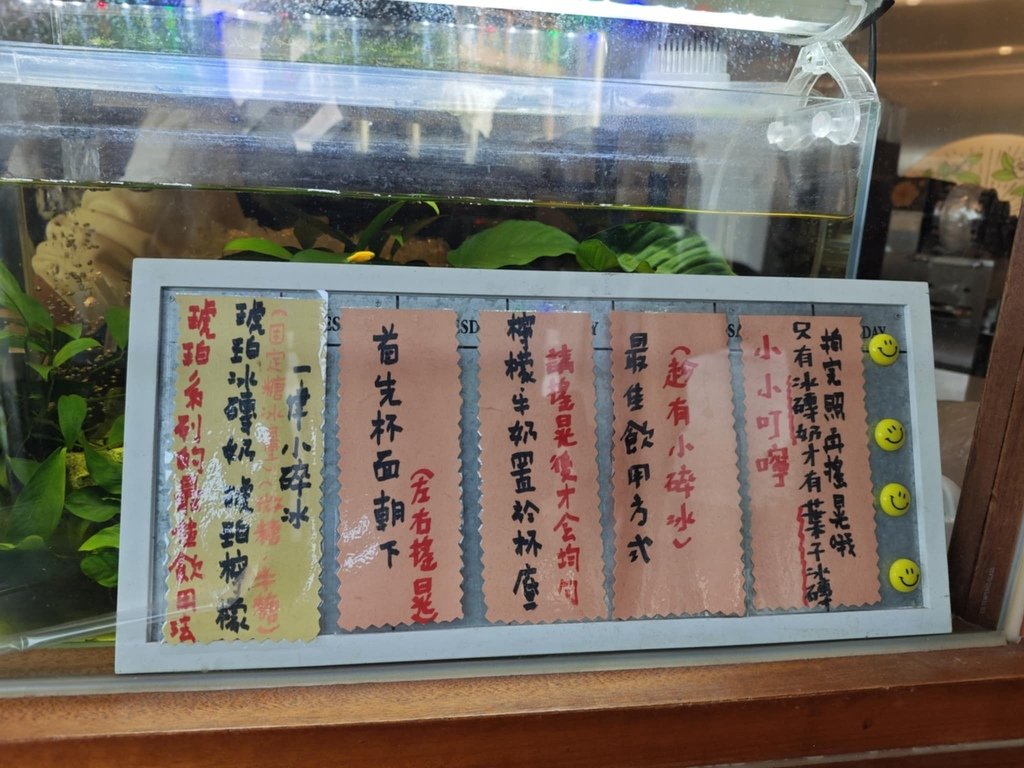 琥珀系列的最佳飲用法
琥珀冰磚奶 琥珀檸檬
(固定糖冰量)(微糖 半糖)
一律小碎冰
首先杯面朝下
(左右搖晃)
檸檬牛奶置於杯底
請搖晃後才会均勻
最佳飲用方式
(趁有小碎冰)
小小叮嚀
只有冰磚奶才有葉子冰磚
拍完照再搖晃哦
DAY